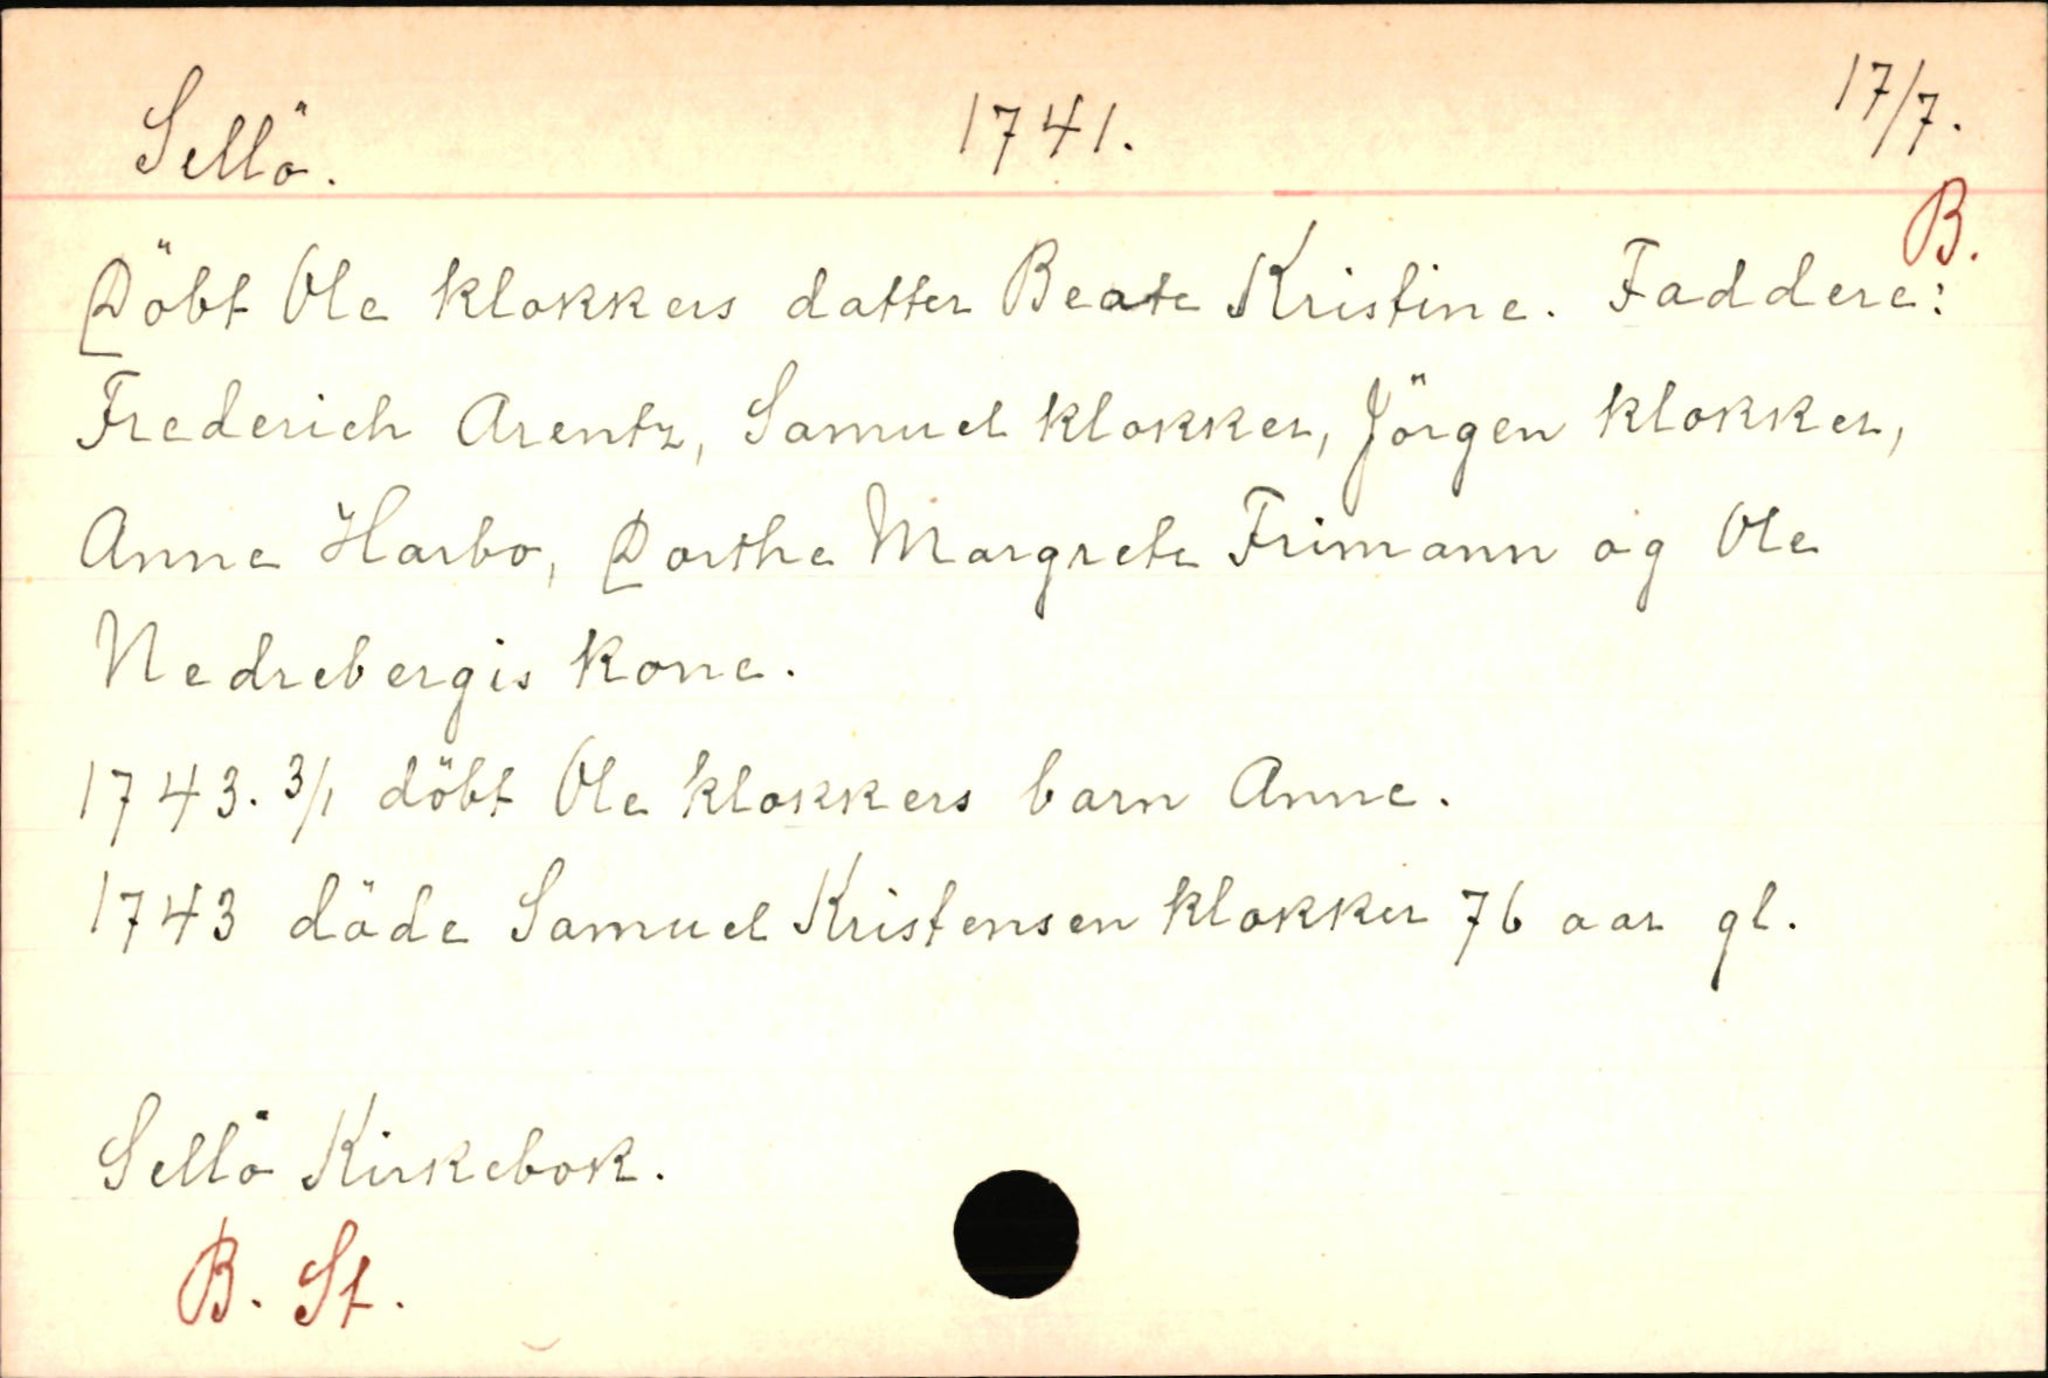 Sellö. 1741. 17/7.
B.
Döbt Ole klokkers datter Beate Kristine. Faddere:
Frederich Arentz, Samuel klokker, Jörgen klokker,
Anne Harbo, Dorthe Margrete Frimann og Ole
Nedrebergis kone.
1743. 3/1 döbt Ole klokkers barn Anne.
1743 döde Samuel Kristensen klokker 76 aar gl.
Sellö Kirkebok.
B. St.